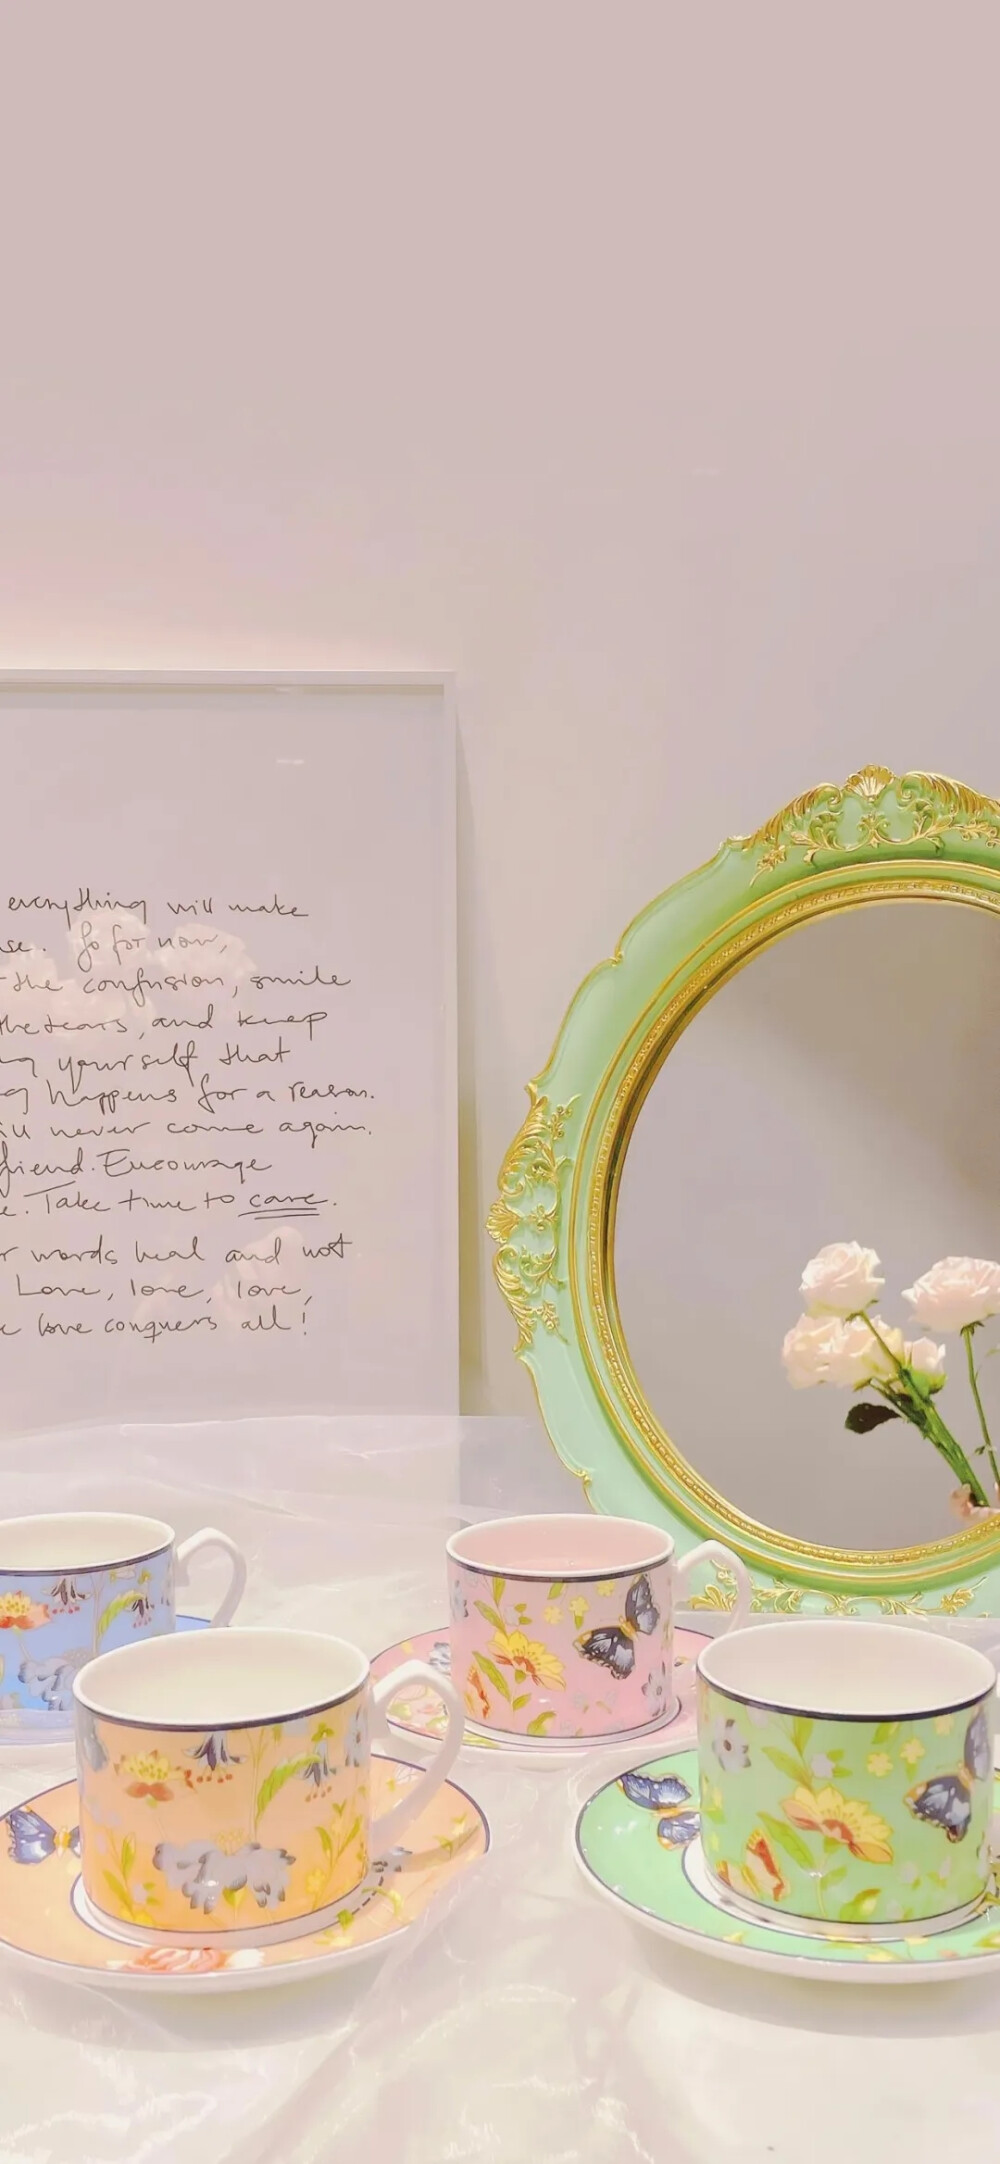 everything will make
se. So for now,
the confusion, smile
the tears, and keep
ng yourself that
ng happens for a reason.
ill never come again.
friend. Encourage
e. Take time to care.
r words heal and not
Love, love, love,
e love conquers all!